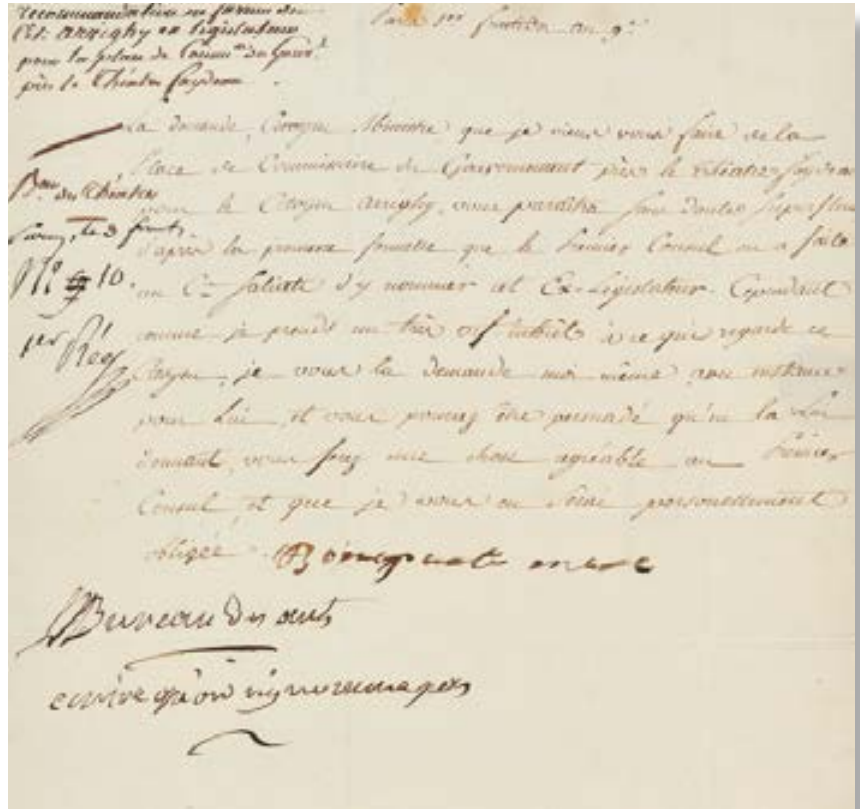 recommandation en faveur du
Cit. Arrighy ex législateur
pour la place de Commre du Gouvt
près le Théâtre Faydeau.
Paris 1er fructidor an 9e
La demande, Citoyen Ministre que je viens vous faire de la
Place de Commissaire du Gouvernement près le théatre Faydeau
pour le Citoyen Arrighy, vous paraîtra sans doute superflue
d'après la promesse formelle que le Premier Consul en a faite
au Cen Saliceti d'y nommer cet Ex-Législateur. Cependant
comme je prends un très vif intérêt à ce qui regarde ce
Citoyen, je vous la demande moi même avec instance
pour lui, et vous pouvez être persuadé qu'en la lui
donnant, vous ferez une chose agréable au Premier
Consul et que je vous en serai personnellement
obligée.
Bau des Théâtres
le 3 fruct.
No 10.
1er Reg
Bureau des arts
écrire qu'on n'y nommera pas